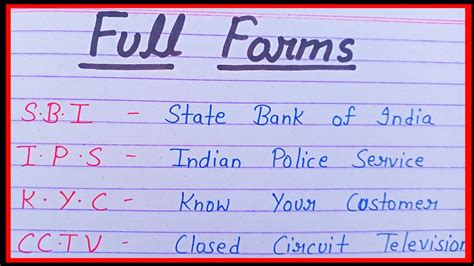 Full Forms
S.B.I - State Bank of India
I.P.S - Indian Police Service
K.Y.C - Know Your Customer
CCTV - Closed Circuit Television